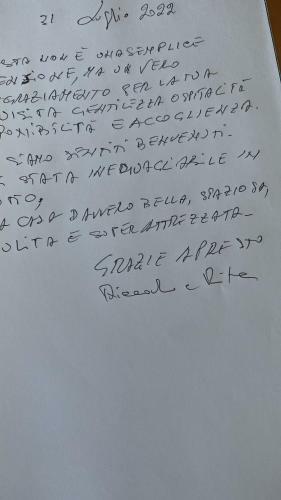 31 Luglio 2022
STA NON È UNA SEMPLICE
ENSIONE, MA UN VERO
GRAZIAMENTO PER LA TUA
UISITA GENTILEZZA OSPITALITÀ
PONIBILITÀ E ACCOGLIENZA.
SIAMO SENTITI BENVENUTI.
È STATA INEGUAGLIABILE IN
TTO,
A CASA DAVVERO BELLA, SPAZIOSA,
ULITA E SUPER ATTREZZATA.
GRAZIE A PRESTO
Riccardo e Rita